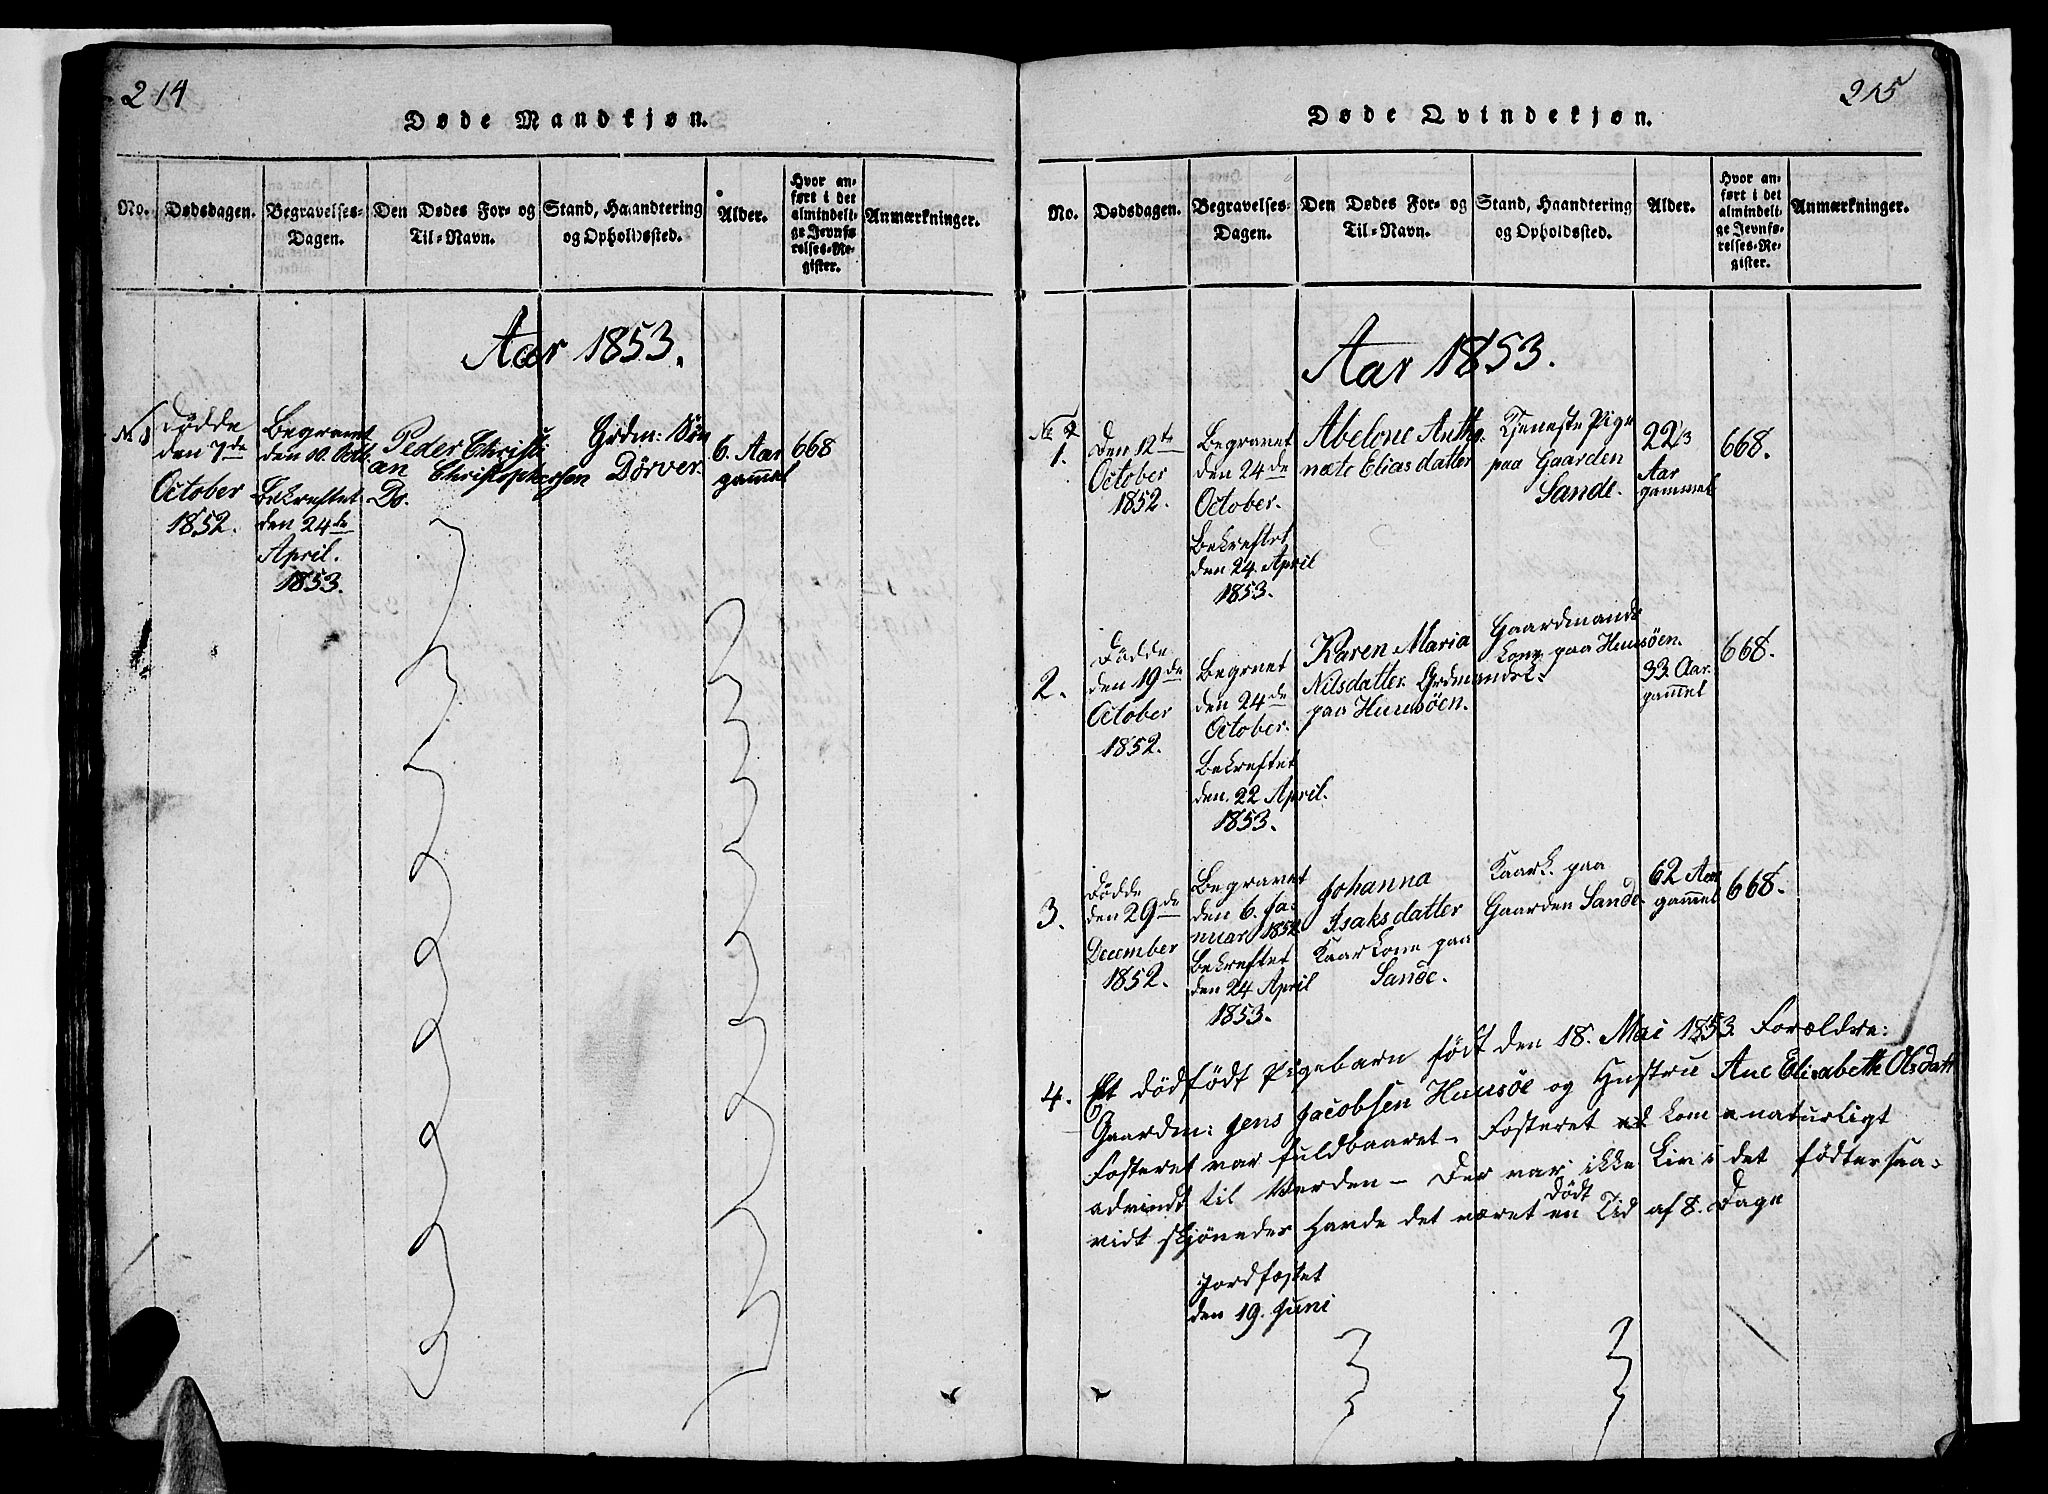 214
Døde Mandkjøn.
No.
Dødsdagen.
Begravelses-
Dagen.
Den Dødes For- og
Til-Navn.
Stand, Haandtering
og Opholdssted.
Alder.
Hvor an-
ført i det
almindeli-
ge Jevnfø-
relses-Re-
gister.
Anmærkninger.
Aar 1853.
N. 1
Dødde
den 7de
October
1852.
Begravet
den 10. Octb.
Bekreftet
den 24de
April.
1853.
Peder Christi
an Christophersen
Do.
Grdm: Søn
Dörver.
6. Aar
gammel
668
215
Døde Qvindekjøn.
No.
Dødsdagen.
Begravelses-
Dagen.
Den Dødes For- og
Til-Navn.
Stand, Haandtering
og Opholdssted.
Alder.
Hvor an-
ført i det
almindeli-
ge Jevnfø-
relses-Re-
gister.
Anmærkninger.
Aar 1853.
№
1.
Den 12te
October
1852.
Begravet
den 24de
October.
Bekreftet
den 24. April
1853.
Abelone Antho-
nete Eliasdatter
Tjeneste Pige
paa Gaarden
Sande.
22⅓
Aar
gammel
668.
2.
Dødde
den 19de
October
1852.
Begravet
den 24de
October.
Bekreftet
den. 22 April.
1853.
Karen Maria
Nilsdatter. Grdmandsk.
paa Huusöen.
Gaardmands
Kone paa Huusöen.
33. Aar.
gammel
668.
3.
Dödde
den 29de
December
1852.
Begravet
den 6. Ja-
nuar 1852
Bekreftet
den 24 April
1853.
Johanna
Isaksdatter
Kaarkone paa
Sande.
Kaark. paa
Gaarden Sande.
62 Aar
gammel
668.
4. Et dödfödt Pigebarn födt den 18. Mai 1853 Forældre:
Gaardm: Jens Jacobsen Huusöe og Hustru Ane Elisabeth Olsdatt
Fosteret var fuldbaaret – Fosteret kom naturligt
til Verden – Der var ikke Liv i det födter saa-
vidt skjönedes havde det været dödt en Tid af 8. Dage
Jordfæstet
den 19. Juni